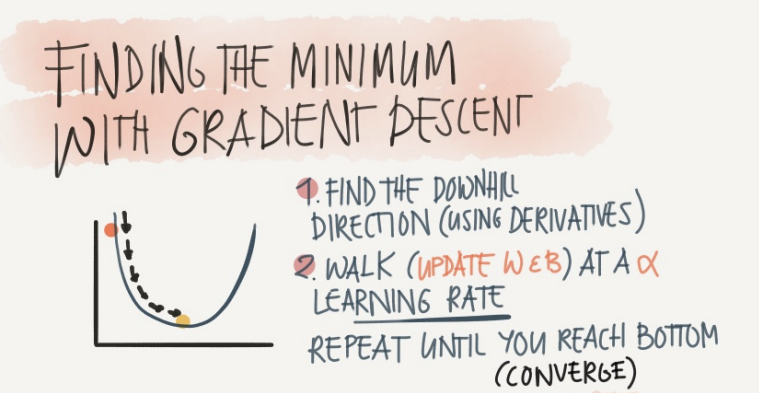 FINDING THE MINIMUM
WITH GRADIENT DESCENT
1. FIND THE DOWNHILL
DIRECTION (USING DERIVATIVES)
2. WALK (UPDATE W & B) AT A α
LEARNING RATE
REPEAT UNTIL YOU REACH BOTTOM
(CONVERGE)